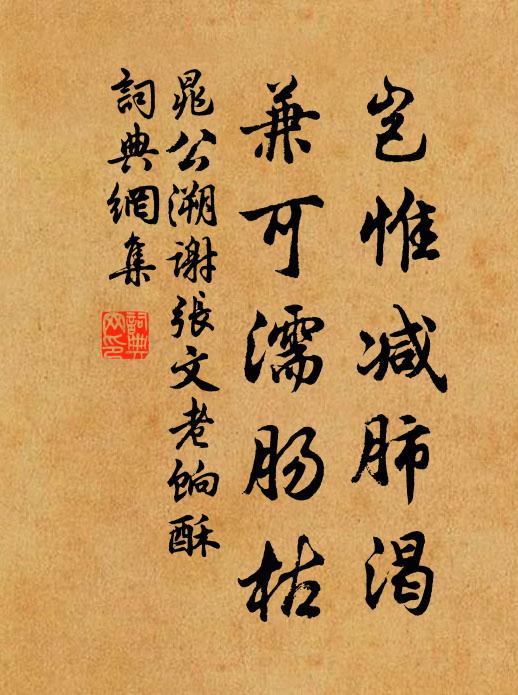 岂惟减肺渴
兼可濡肠枯
晁公溯谢张文老饷酥
词典網集
詞典網印